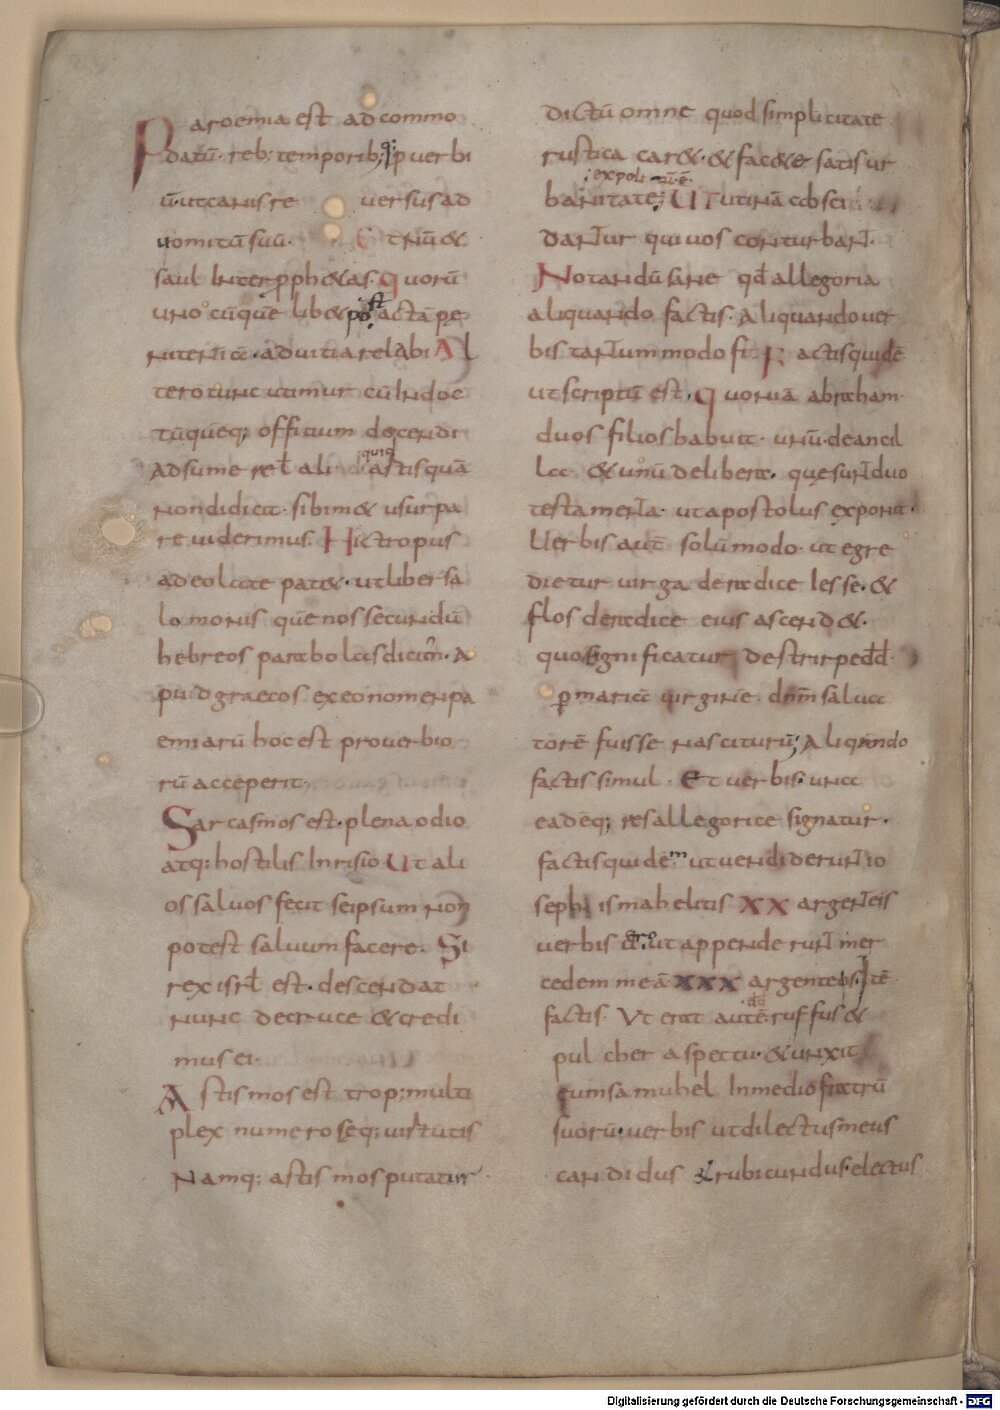 Paroemia est ad commo
datū. reb; temporib; q; pverbi
ū. ut canis re uersus ad
uomitū suū. Et nū &
saul inter pph&as. Quorū
uno cūque lib& post acta pę
nitentiæ. ad uitia relabi Al
tero tunc utimur cū indoc
tū quēq; offitium docendi
adsume re l ali quiq astis quā
non didicit. sibim& usurpa
re uiderimus. Hic tropus
adeo late pat&. ut liber sa
lomonis quē nos secundū
hebreos parabolas dicim̄. A
pud graecos ex eo nomen pa
emiarū hoc est prouerbio
rū acceperit.
Sarcasmos est. plena odio
atq; hostilis inrisio Ut ali
os saluos fecit seipsum non
potest saluum facere. Si
rex isrl est. descendat
nunc de cruce & credi
mus ei.
Astismos est trop; multi
plex numerosęq; uirtutis
Namq; astismos putatur
dictū omne quod simplicitate
rustica car&. & fac&e satis ur
expolitū. ē.
banitate; Ut utinā abscin
dantur qui uos conturbant.
Notandū sane qđ allegoria
aliquando factis. Aliquando uer
bis tantummodo fit. Factis quidē
ut scriptū est. quoniā abraham
duos filios habuit. unū. de ancil
la & unū de libera. que sunt duo
testamenta. ut apostolus exponit.
Uerbis aut̄ solūmodo. ut egre
dietur uirga de radice iesse. &
flos de radice eius ascend&.
quo significatur de stirpe dd.
p maria uirgine dnm salua
torē fuisse nasciturū; Aliqando
factis simul. Et uerbis. una
eadēq; res allegorice signatur.
factis quidem ut uendiderunt io
seph ismahelitis. XX argenteis
uerbis uero ut appenderunt mer
cedem meā xxx argenteis. Itē
factis. Ut erat autē dd ruffus &
pulcher aspectu. & unxit
eum samuhel in medio fratrū
suorū. uerbis ut dilectus meus
candidus & rubicundus. electus
Digitalisierung gefördert durch die Deutsche Forschungsgemeinschaft - DFG